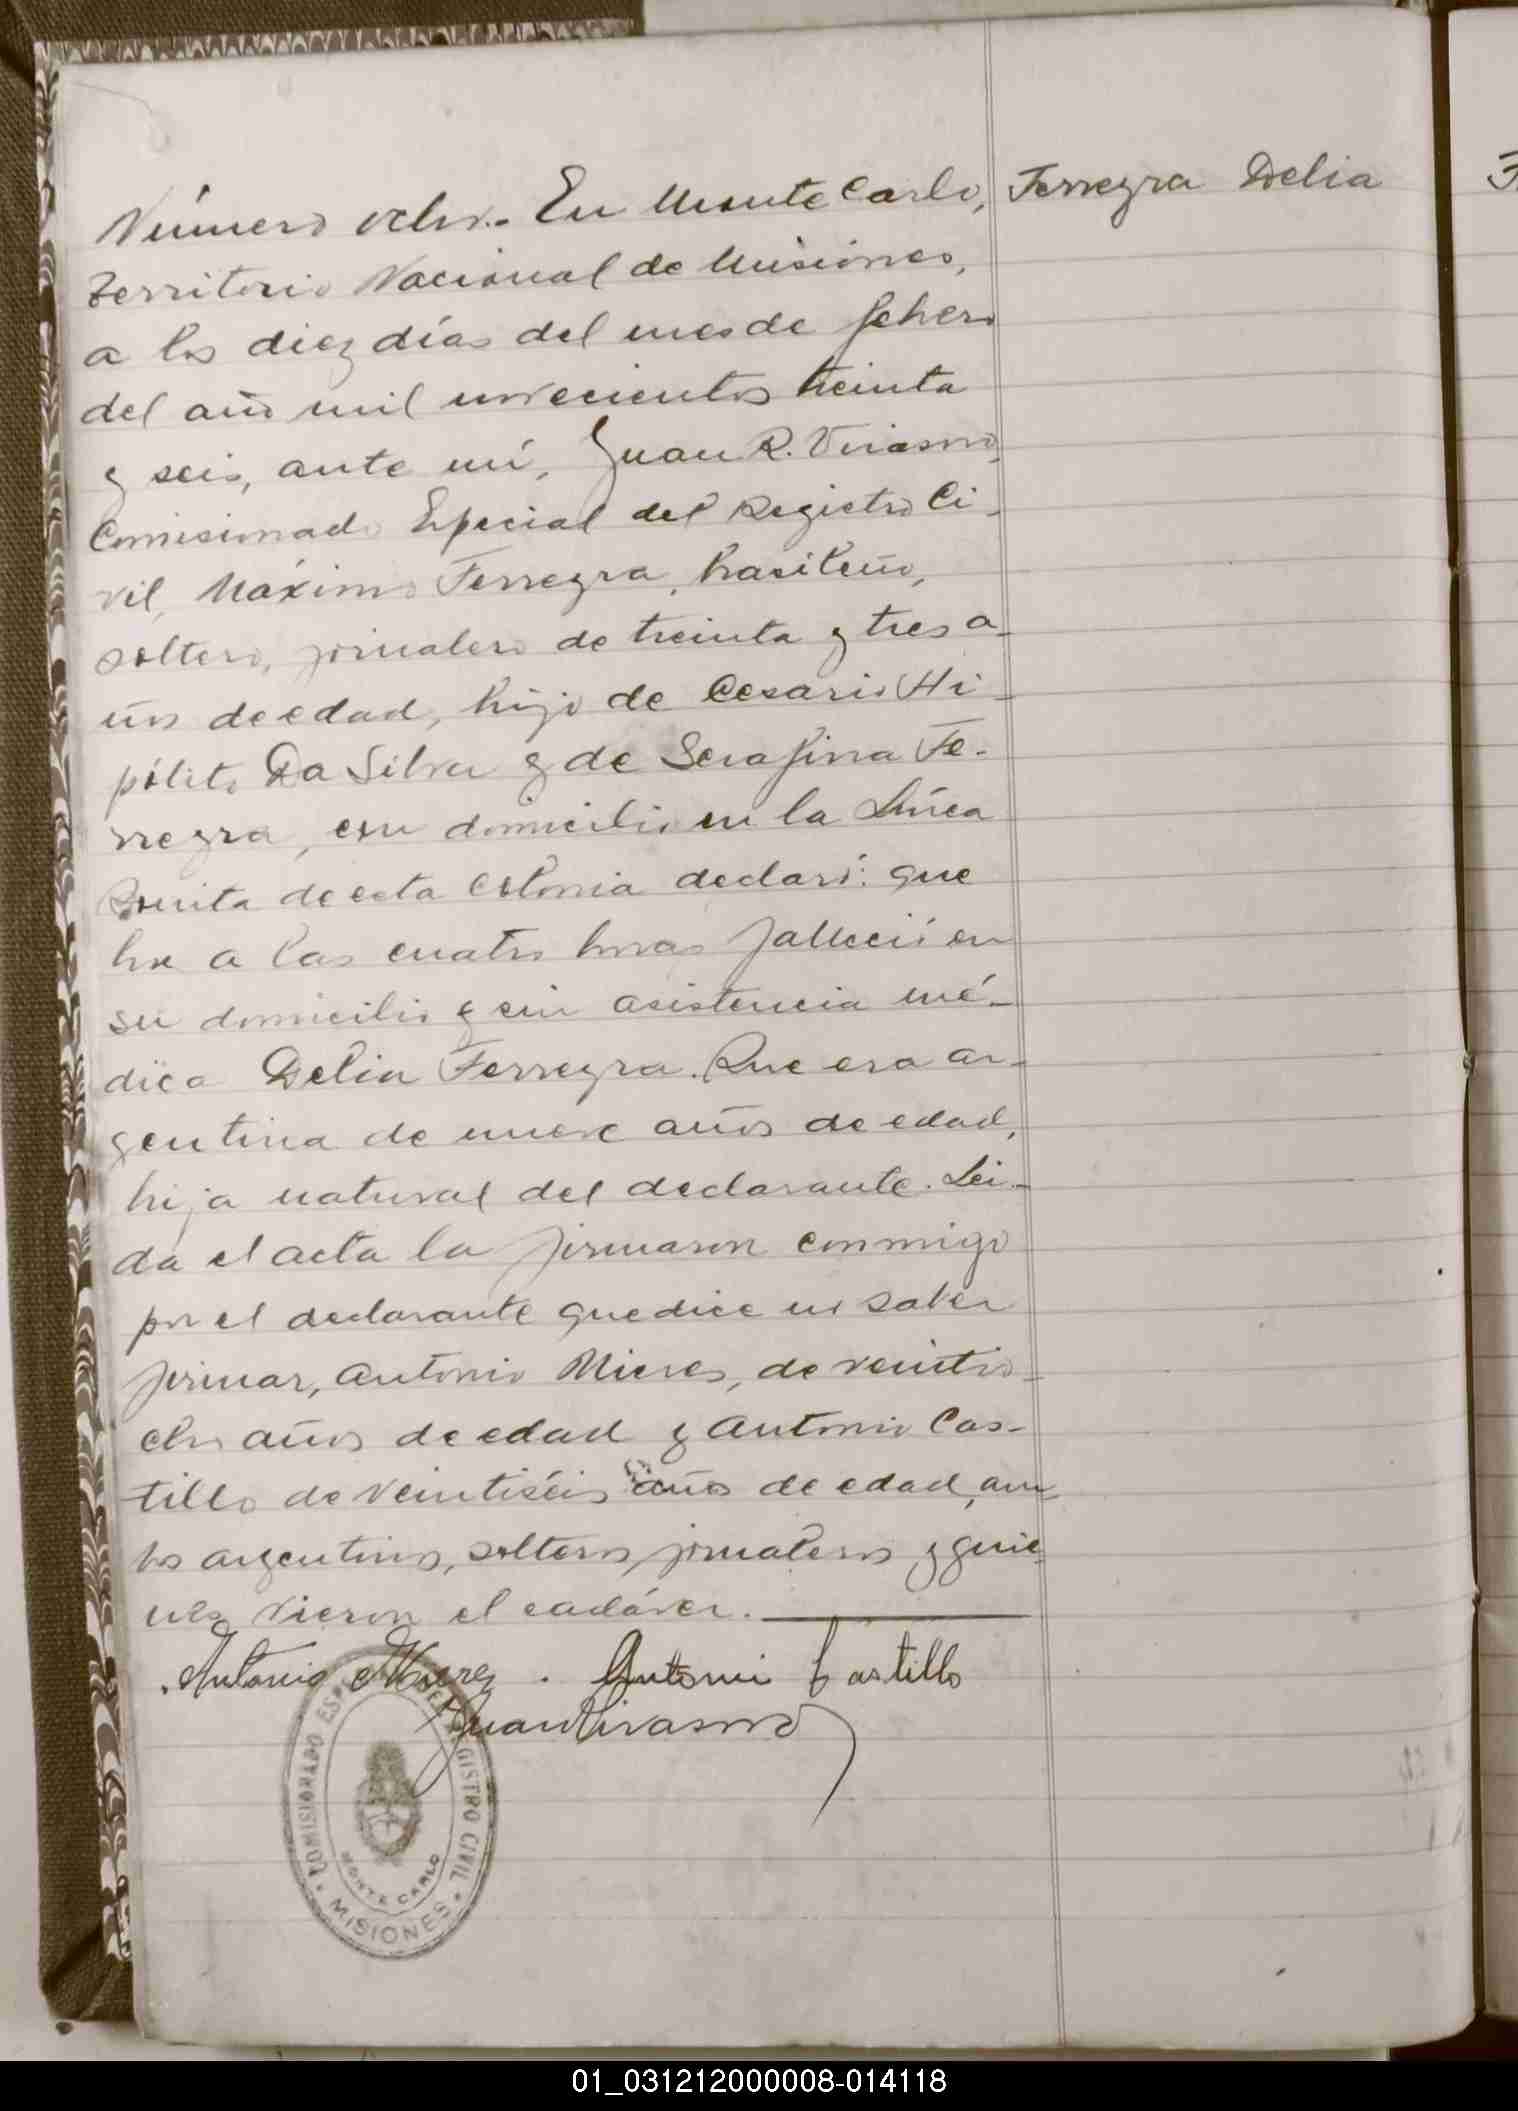 Número ocho.- En Monte Carlo,
Territorio Nacional de Misiones,
a los diez días del mes de febrero
del año mil novecientos treinta
y seis, ante mí, Juan R. Virasoro,
Comisionado Especial del Registro Ci-
vil, Máximo Ferreyra, brasileño,
soltero, jornalero de treinta y tres a-
ños de edad, hijo de Cesario Hi-
pólito Da Silva y de Serafina Fe-
rreyra, con domicilio en la Línea
Bonita de esta Colonia declaró: que
hoy a las cuatro horas falleció en
su domicilio y sin asistencia mé-
dica Delia Ferreyra. Que era ar-
gentina de nueve años de edad,
hija natural del declarante. Leí-
da el acta la firmaron conmigo
por el declarante que dice no saber
firmar, Antonio Nieres, de veintio-
cho años de edad y Antonio Cas-
tillo de veintiséis años de edad, am-
bos argentinos, solteros, jornaleros y quie-
nes vieron el cadáver.
Antonio Antonio Castillo
Juan R Virasoro
Ferreyra Delia
COMISIONADO ESPECIAL DEL REGISTRO CIVIL
MONTE CARLO
MISIONES
01_031212000008-014118